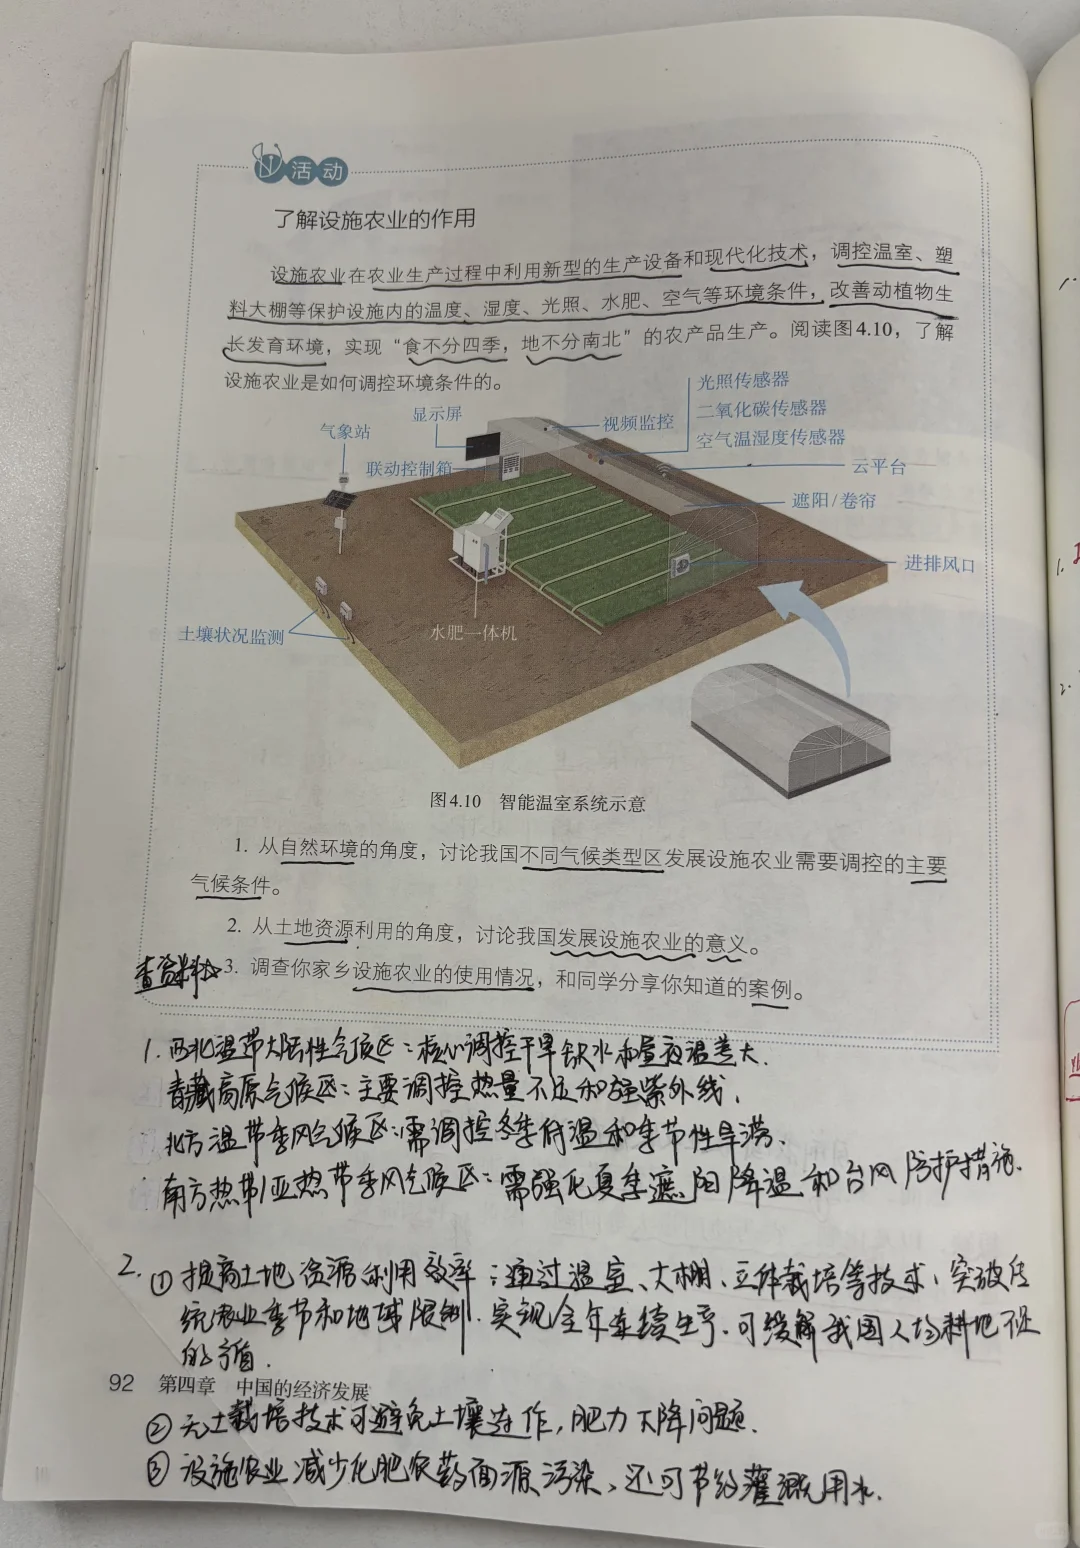 活动
了解设施农业的作用
设施农业在农业生产过程中利用新型的生产设备和现代化技术，调控温室、塑
料大棚等保护设施内的温度、湿度、光照、水肥、空气等环境条件，改善动植物生
长发育环境，实现“食不分四季，地不分南北”的农产品生产。阅读图4.10，了解
设施农业是如何调控环境条件的。
光照传感器
显示屏
二氧化碳传感器
视频监控
气象站
空气温湿度传感器
联动控制箱
云平台
遮阳/卷帘
进排风口
土壤状况监测
水肥一体机
图4.10 智能温室系统示意
1. 从自然环境的角度，讨论我国不同气候类型区发展设施农业需要调控的主要
气候条件。
2. 从土地资源利用的角度，讨论我国发展设施农业的意义。
查资料☆3. 调查你家乡设施农业的使用情况，和同学分享你知道的案例。
1. 西北温带大陆性气候区：核心调控干旱缺水和昼夜温差大.
青藏高原气候区：主要调控热量不足和强紫外线.
北方温带季风气候区：需调控冬季低温和季节性旱涝.
南方热带/亚热带季风气候区：需强化夏季遮阳降温和台风防护措施.
2. ① 提高土地资源利用效率：通过温室、大棚、立体栽培等技术，突破传
统农业季节和地域限制. 实现全年连续生产. 可缓解我国人均耕地不足
的矛盾.
92 第四章 中国的经济发展
② 无土栽培技术可避免土壤连作，肥力下降问题.
③ 设施农业减少化肥农药面源污染、还可节约灌溉用水.